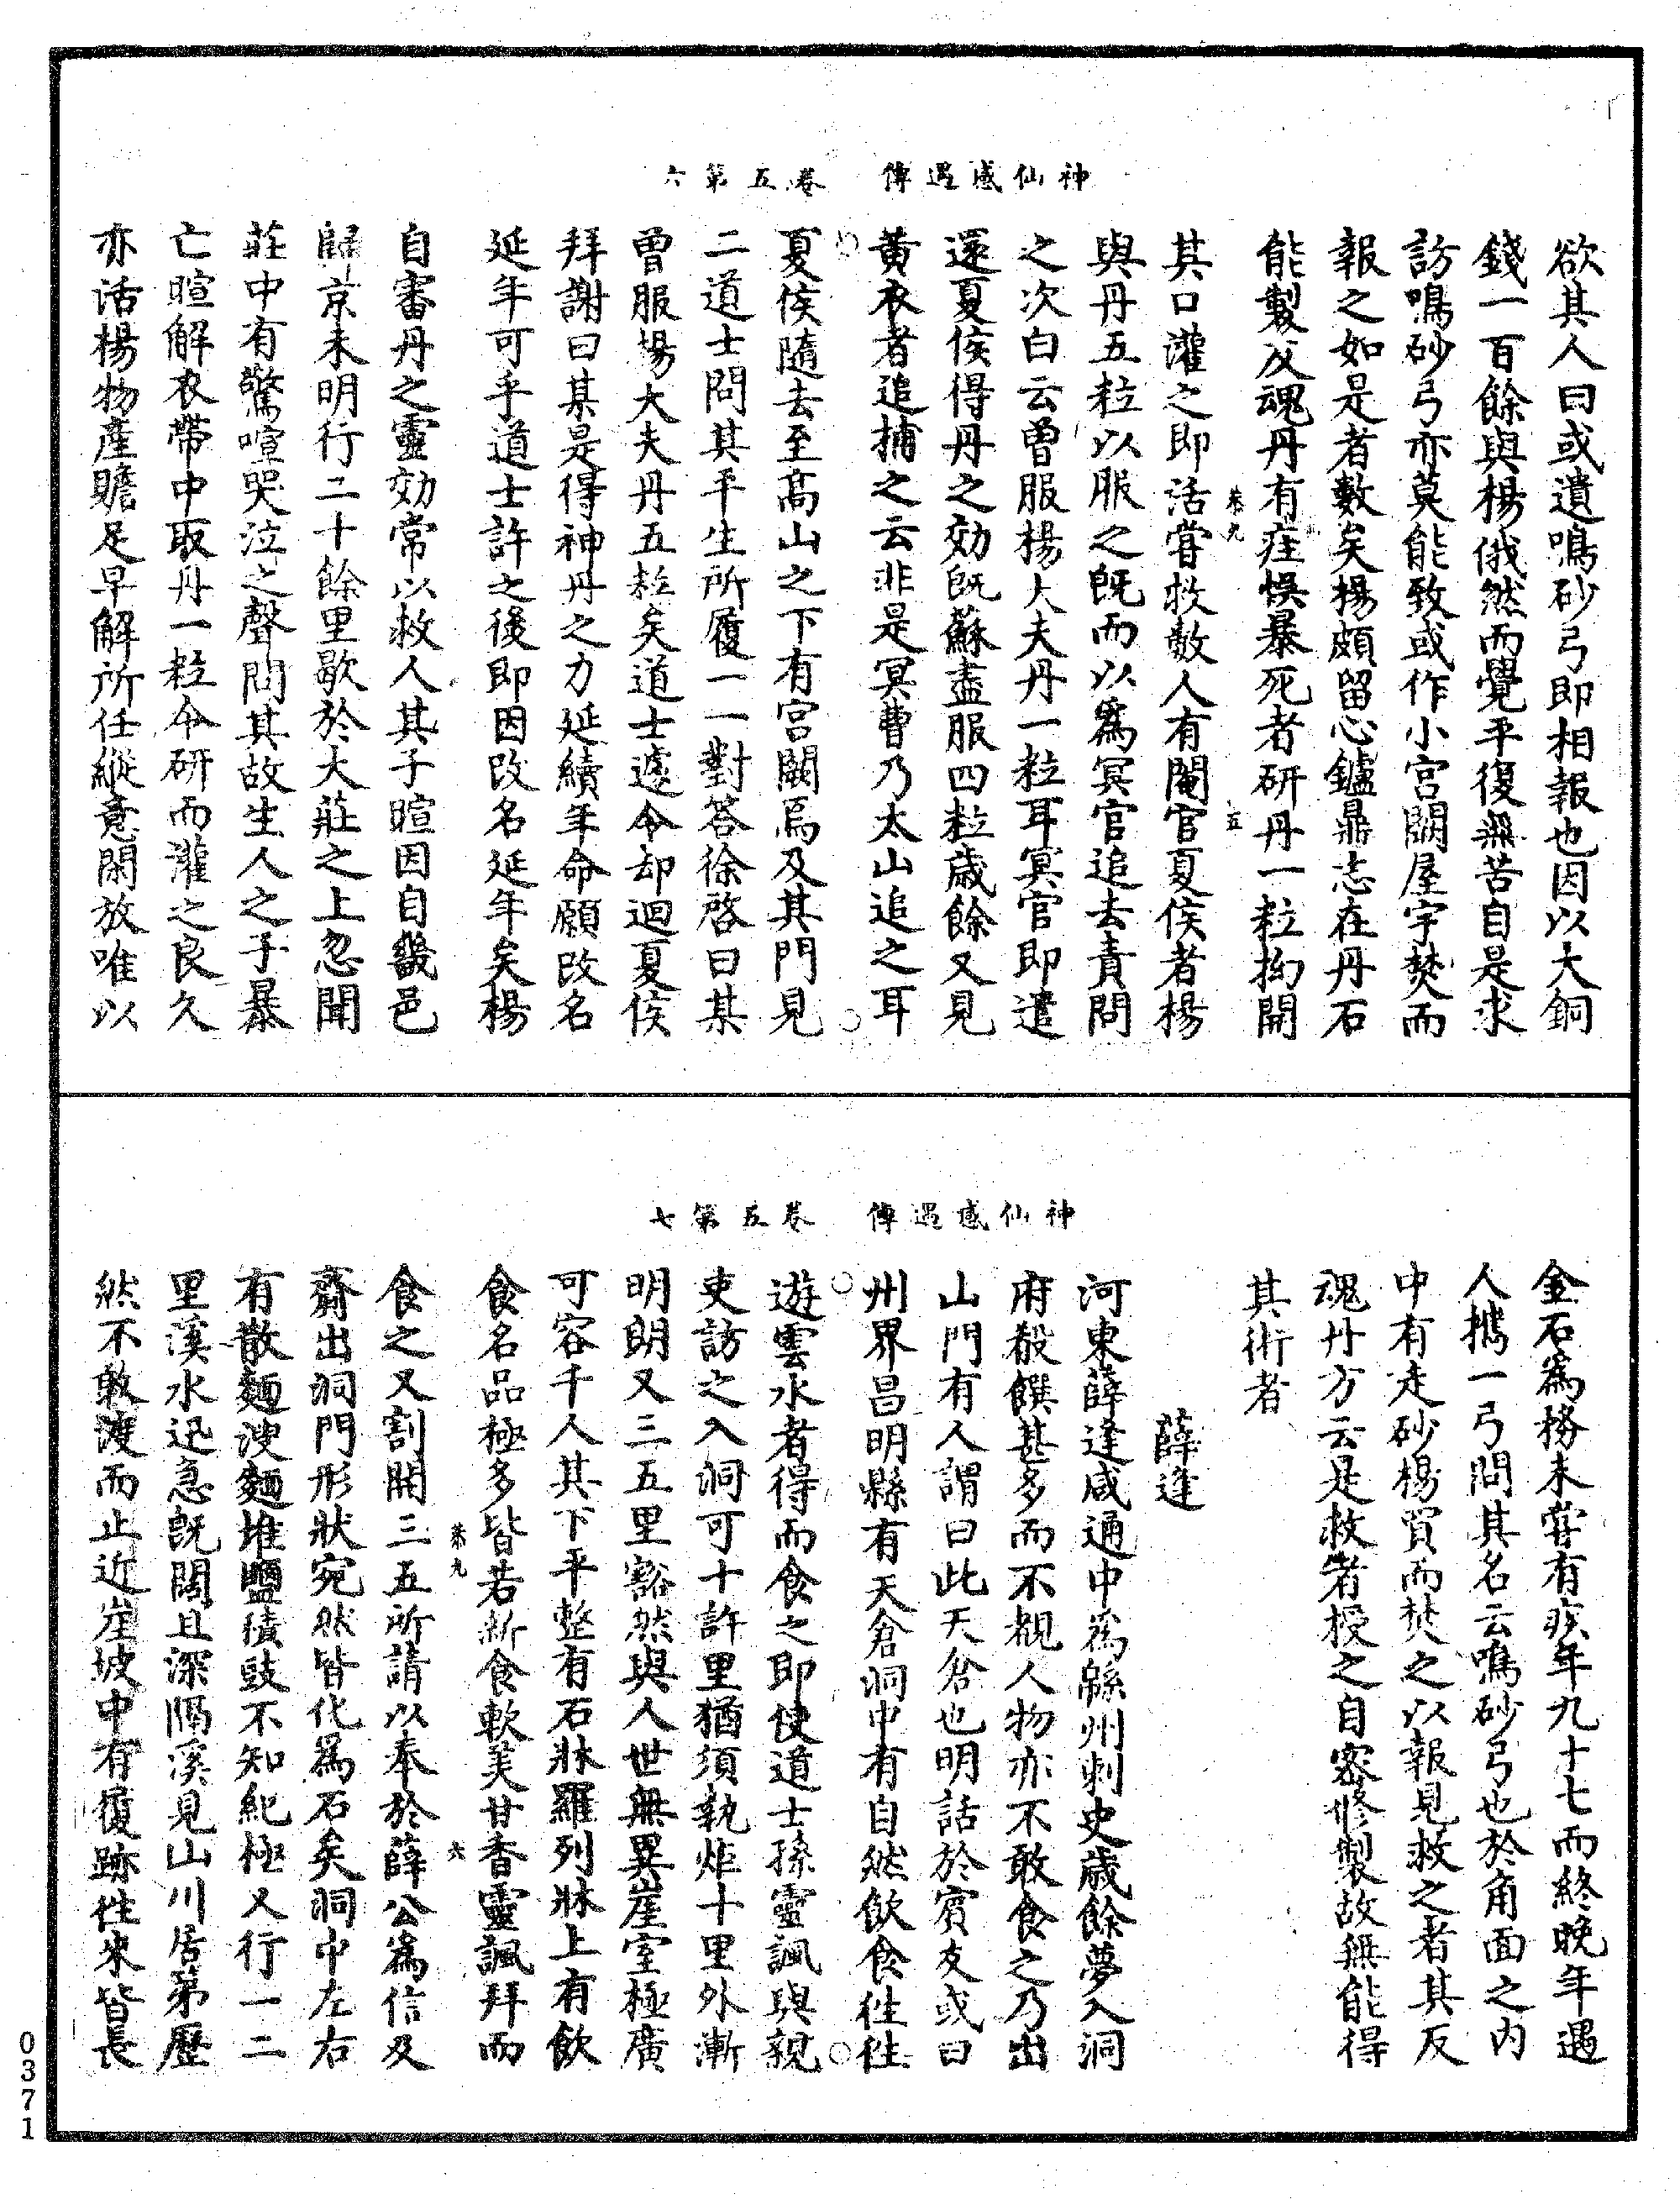 神仙感遇傳　卷五第六
欲其人曰或遺鳴砂弓即相報也因以大銅
錢一百餘與楊俄然而覺平復無苦自是求
訪鳴砂弓亦莫能致或作小宮闕屋宇焚而
報之如是者數矣楊頗留心鑪鼎志在丹石
能製反魂丹有疰悮暴死者研丹一粒拗開
恭九　五
其口灌之即活嘗救數人有閹官夏侯者楊
與丹五粒以服之既而以為冥官追去責問
之次白云曾服楊大夫丹一粒耳冥官即遣
還夏侯得丹之効既蘇盡服四粒歲餘又見
黃衣者追捕之云非是冥曹乃太山追之耳
夏侯隨去至高山之下有宮闕焉及其門見
二道士問其平生所履一一對答徐啓曰某
曾服楊大夫丹五粒矣道士遽令却迴夏侯
拜謝曰某是得神丹之力延續年命願改名
延年可乎道士許之後即因改名延年矣楊
自審丹之靈効常以救人其子暄因自畿邑
歸京未明行二十餘里歇於大莊之上忽聞
莊中有驚喧哭泣之聲問其故生人之子暴
亡暄解衣帶中取丹一粒令研而灌之良久
亦活楊物產贍足早解所任縱意閑放唯以
神仙感遇傳　卷五第七
金石為務未嘗有疾年九十七而終晚年遇
人攜一弓問其名云鳴砂弓也於角面之內
中有走砂楊買而焚之以報見救之者其反
魂丹方云是救者授之自密修製故無能得
其術者
薛逢
河東薛逢咸通中為緜州刺史歲餘夢入洞
府殽饌甚多而不覩人物亦不敢食之乃出
山門有人謂曰此天倉也明話於賓友或曰
州界昌明縣有天倉洞中有自然飲食往往
遊雲水者得而食之即使道士孫靈諷與親
吏訪之入洞可十許里猶須執炬十里外漸
明朗又三五里豁然與人世無異崖室極廣
可容千人其下平整有石牀羅列牀上有飲
食名品極多皆若新食軟美甘香靈諷拜而
恭九　六
食之又割開三五所請以奉於薛公為信及
齎出洞門形狀宛然皆化為石矣洞中左右
有散麵溲麵堆鹽積豉不知紀極又行一二
里溪水迅急既闊且深隔溪見山川居第歷
然不敢渡而止近崖坡中有履跡往來皆長
0371